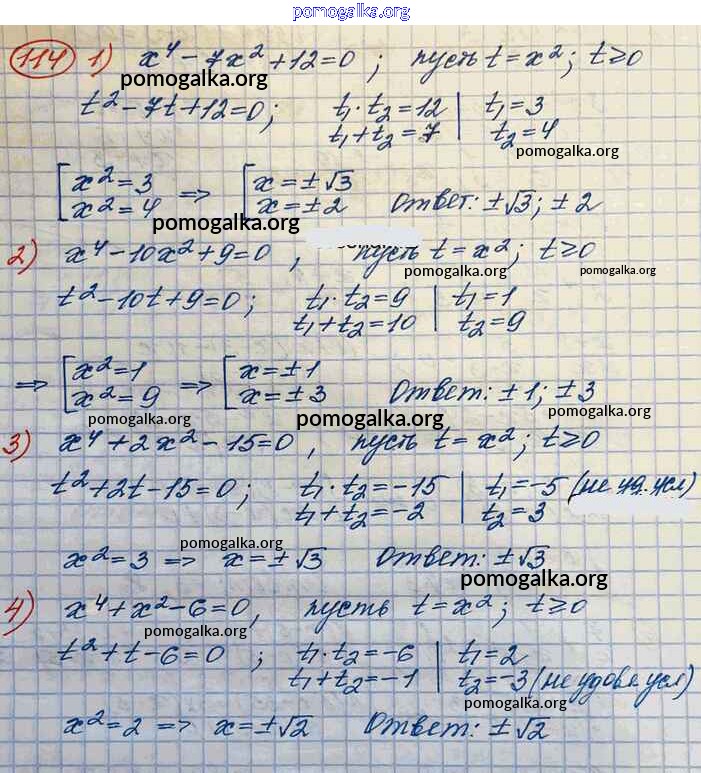 pomogalka.org
114 1) x⁴ - 7x² + 12 = 0 ; пусть t = x² ; t ≥ 0
pomogalka.org
t² - 7t + 12 = 0 ; t₁ · t₂ = 12 | t₁ = 3
t₁ + t₂ = 7 | t₂ = 4
pomogalka.org
[ x² = 3 => [ x = ± √3
x² = 4 x = ± 2 Ответ: ± √3 ; ± 2
pomogalka.org
2) x⁴ - 10x² + 9 = 0 , пусть t = x² ; t ≥ 0
pomogalka.org pomogalka.org
t² - 10t + 9 = 0 ; t₁ · t₂ = 9 | t₁ = 1
t₁ + t₂ = 10 | t₂ = 9
=> [ x² = 1 => [ x = ± 1
x² = 9 x = ± 3 Ответ: ± 1 ; ± 3
pomogalka.org pomogalka.org pomogalka.org
3) x⁴ + 2x² - 15 = 0 , пусть t = x² ; t ≥ 0
t² + 2t - 15 = 0 ; t₁ · t₂ = -15 | t₁ = -5 (не уд. усл)
t₁ + t₂ = -2 | t₂ = 3
pomogalka.org
x² = 3 => x = ± √3 Ответ: ± √3
pomogalka.org
4) x⁴ + x² - 6 = 0 , пусть t = x² ; t ≥ 0
pomogalka.org
t² + t - 6 = 0 ; t₁ · t₂ = -6 | t₁ = 2
t₁ + t₂ = -1 | t₂ = -3 (не удовл усл)
pomogalka.org
x² = 2 => x = ± √2 Ответ: ± √2
pomogalka.org